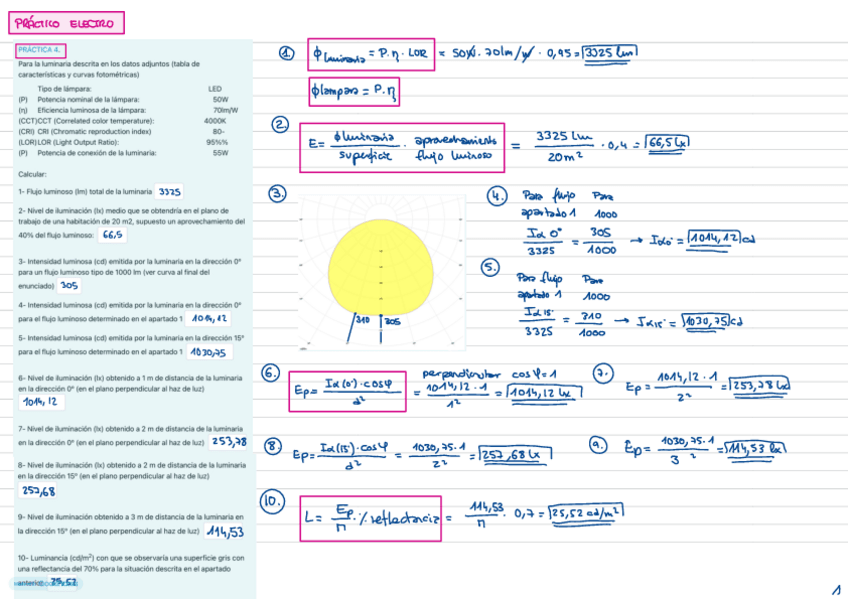 PRÁCTICO ELECTRO
PRÁCTICA 4.
Para la luminaria descrita en los datos adjuntos (tabla de
características y curvas fotométricas)
Tipo de lámpara: LED
(P) Potencia nominal de la lámpara: 50W
(η) Eficiencia luminosa de la lámpara: 70lm/W
(CCT)CCT (Correlated color temperature): 4000K
(CRI) CRI (Chromatic reproduction index) 80-
(LOR)LOR (Light Output Ratio): 95%%
(P) Potencia de conexión de la luminaria: 55W
Calcular:
1- Flujo luminoso (lm) total de la luminaria 3325
2- Nivel de iluminación (lx) medio que se obtendría en el plano de
trabajo de una habitación de 20 m2, supuesto un aprovechamiento del
40% del flujo luminoso: 66,5
3- Intensidad luminosa (cd) emitida por la luminaria en la dirección 0º
para un flujo luminoso tipo de 1000 lm (ver curva al final del
enunciado) 305
4- Intensidad luminosa (cd) emitida por la luminaria en la dirección 0º
para el flujo luminoso determinado en el apartado 1 1014,12
5- Intensidad luminosa (cd) emitida por la luminaria en la dirección 15º
para el flujo luminoso determinado en el apartado 1 1030,75
6- Nivel de iluminación (lx) obtenido a 1 m de distancia de la luminaria
en la dirección 0º (en el plano perpendicular al haz de luz)
1014,12
7- Nivel de iluminación (lx) obtenido a 2 m de distancia de la luminaria
en la dirección 0º (en el plano perpendicular al haz de luz) 253,78
8- Nivel de iluminación (lx) obtenido a 2 m de distancia de la luminaria
en la dirección 15º (en el plano perpendicular al haz de luz)
257,68
9- Nivel de iluminación obtenido a 3 m de distancia de la luminaria en
la dirección 15º (en el plano perpendicular al haz de luz) 114,53
10- Luminancia (cd/m²) con que se observaría una superficie gris con
una reflectancia del 70% para la situación descrita en el apartado
anterior: 25,52
1. ϕluminaria = P.η. LOR = 50W. 70lm/W . 0,95 = 3325 lm
ϕlampara = P.η
2. E = ϕluminaria / superficie . aprovechamiento flujo luminoso = 3325 lm / 20 m² . 0,4 = 66,5 lx
3.
310 305
4. Para flujo Para
apartado 1 1000
Iα 0° / 3325 = 305 / 1000 → Iα0° = 1014,12 cd
5. Para flujo Para
apartado 1 1000
Iα 15° / 3325 = 310 / 1000 → Iα15° = 1030,75 cd
6. Ep = Iα(0°).cosφ / d² = 1014,12 . 1 / 1² = 1014,12 lx
perpendicular cosφ=1
7. Ep = 1014,12 . 1 / 2² = 253,78 lx
8. Ep = Iα(15°).cosφ / d² = 1030,75.1 / 2² = 257,68 lx
9. Ep = 1030,75.1 / 3² = 114,53 lx
10. L = Ep / π . % reflectancia = 114,53 / π . 0,7 = 25,52 cd/m²
1